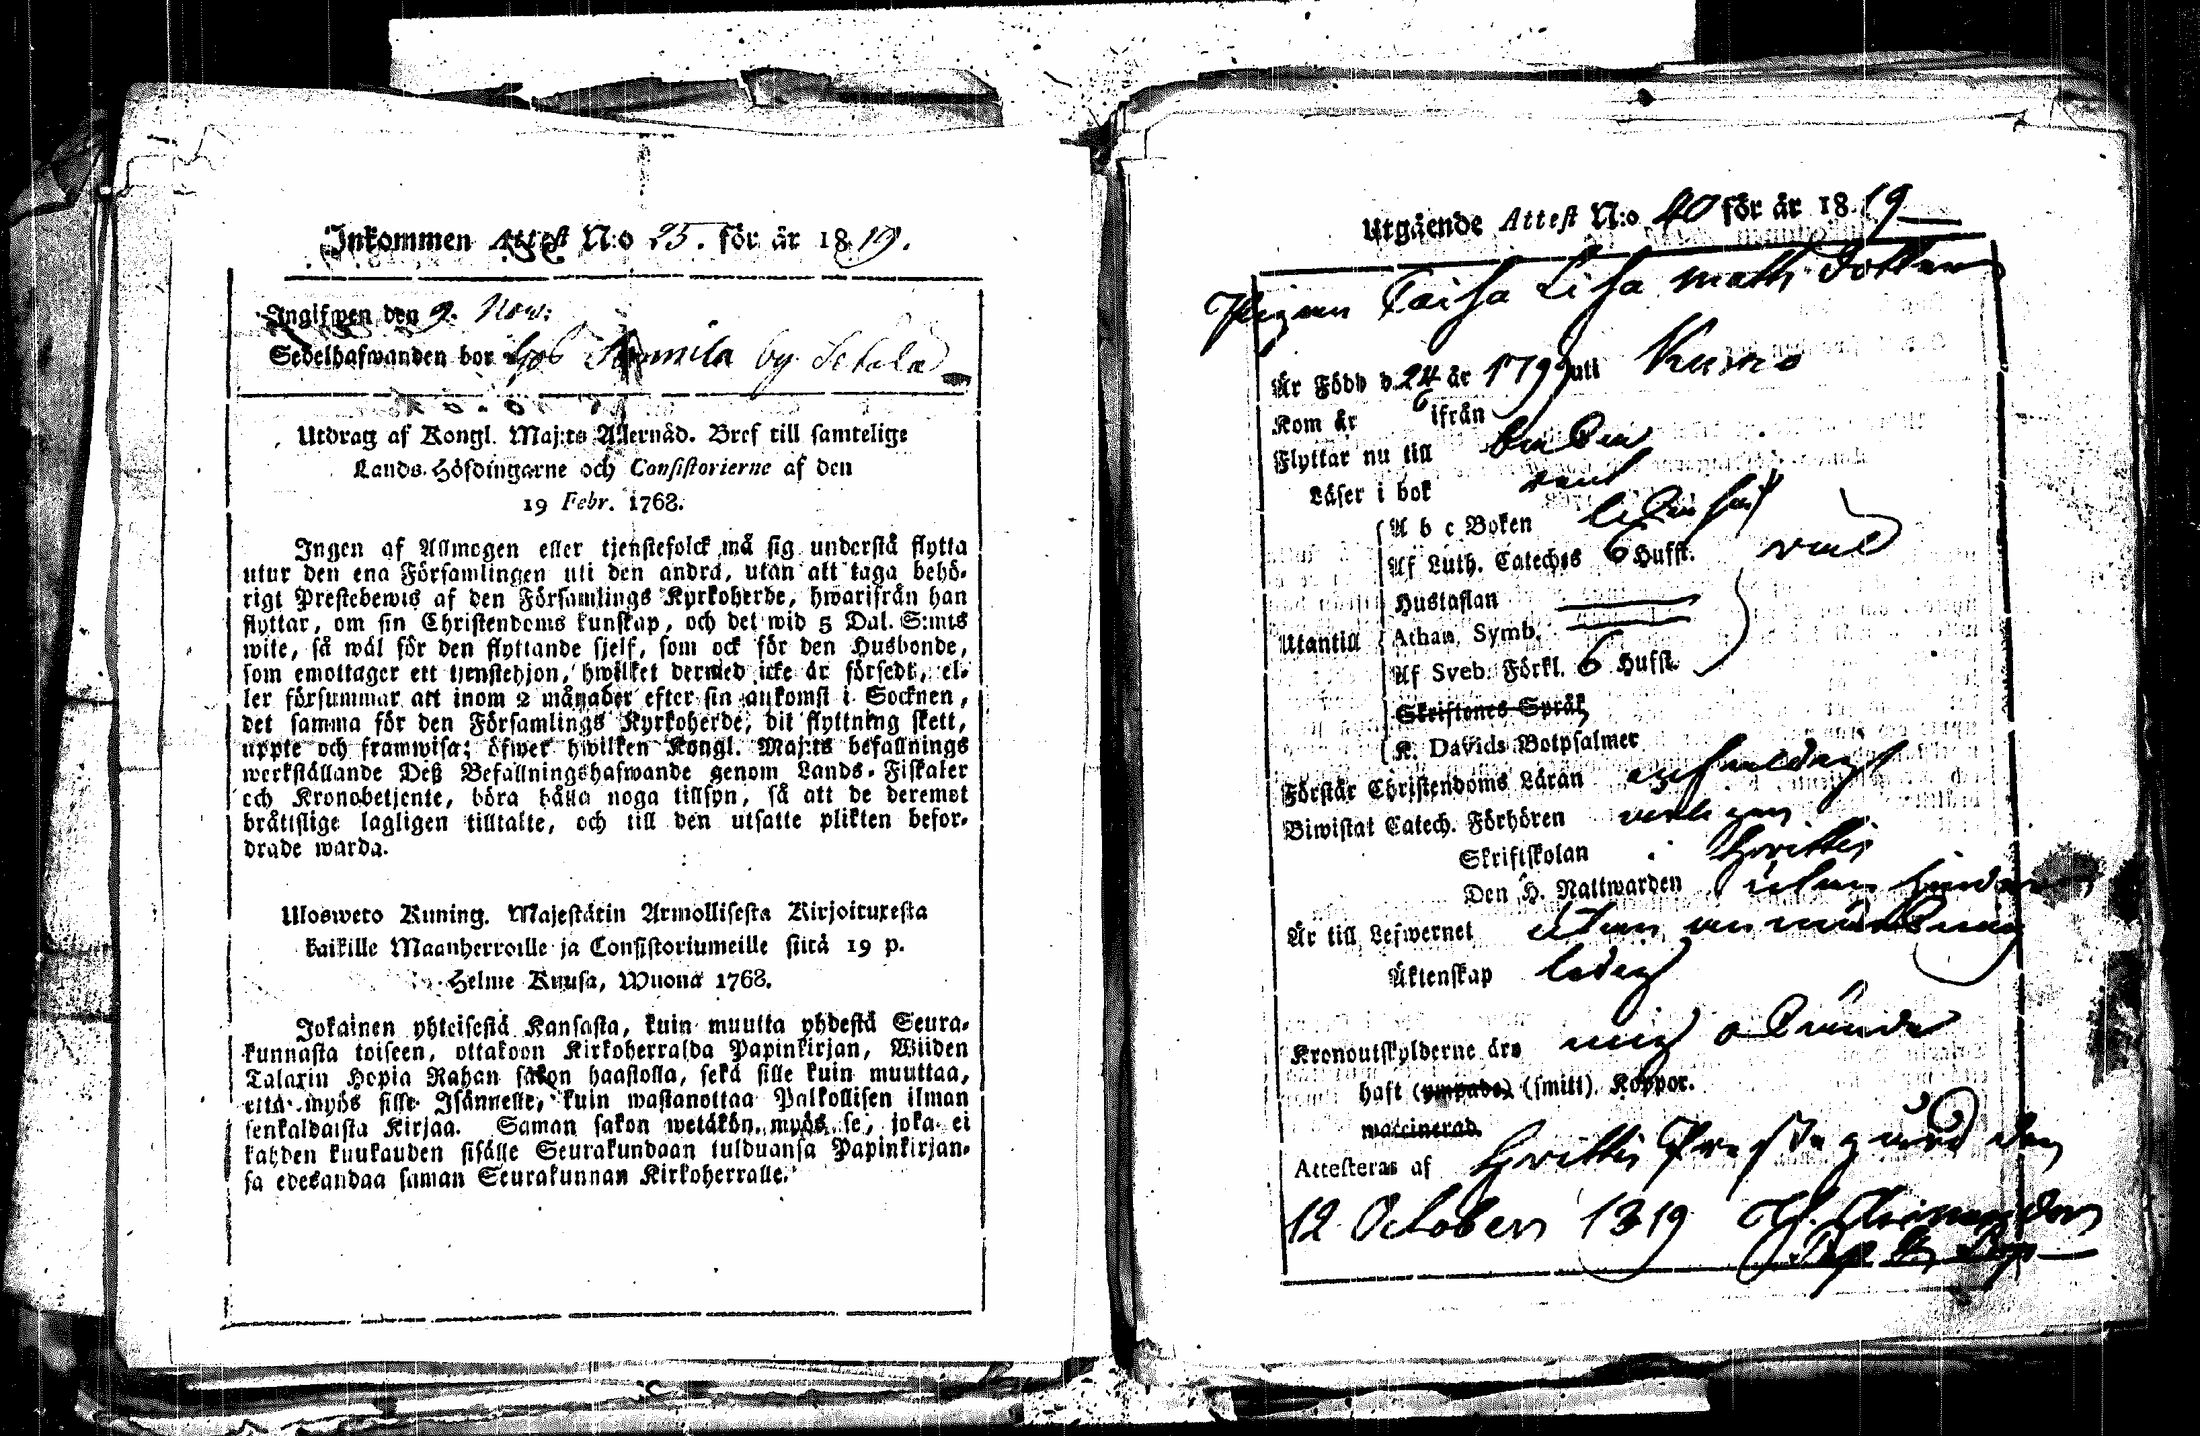 Inkommen Attest N:o 25. för år 1819.
Ingifwen den 9. Nov:
Sedelhafwanden bor hos by
Utdrag af Kongl. Maj:ts Allernåd. Bref till samtelige
Lands-Höfdingarne och Consistorierne af den
19 Febr. 1768.
Ingen af Allmogen eller tjenstefolck må sig understå flytta
utur den ena Församlingen uti den andra, utan att taga behö-
rigt Prestebewis af den Församlings Kyrkoherde, hwarifrån han
flyttar, om sin Christendoms kunskap, och det wid 5 Dal. S:mts
wite, så wäl för den flyttande sjelf, som ock för den Husbonde,
som emottager ett tjenstehjon, hwilket dermed icke är försedt, el-
ler försummar att inom 2 månader efter sin ankomst i Socknen,
det samma för den Församlings Kyrkoherde, dit flyttning skett,
uppte och framwisa; öfwer hwilken Kongl. Maj:ts befallnings
werkställande Deß Befallningshafwande genom Lands-Fiskaler
och Kronobetjente, böra hålla noga tillsyn, så att de deremot
bråttslige lagligen tilltalte, och till den utsatte plikten befor-
drade warda.
Ulosweto Kuning. Majestätin Armollisesta Kirjoituxesta
kaikille Maanherroille ja Consistoriumeille siitä 19 p.
Helme Kuusa, Wuona 1768.
Jokainen yhteisestä Kansasta, kuin muutta yhdestä Seura-
kunnasta toiseen, ottakoon Kirkoherralda Papinkirjan, Wiiden
Talarin Hopia Rahan sakon haastolla, sekä sille kuin muuttaa,
että myös sille Isännelle, kuin wastanottaa Palkollisen ilman
senkaldaista Kirjaa. Saman sakon wetäkön myös se, joka ei
kahden kuukauden sisälle Seurakundaan tulduansa Papinkirjan-
sa edesandaa saman Seurakunnan Kirkoherralle.
Utgående Attest N:o 40 för år 1819
Pigan Caisa Lisa Matts dotter
Är Född d. 24 år 1799 uti
Kom år ifrån
Flyttar nu till
Läser i bok
A b c Boken
Af Luth. Cateches 6 Hufst.
Hustaflan
Utantill Athan. Symb.
Af Sveb. Förkl. 6 Hufst.
Skriftenes Språk
K. Davids Botpsalmer
Förstår Christendoms Läran
Biwistat Catech. Förhören
Skriftskolan Hvittis
Den H. Nattwarden utan hinder
Är till Lefwernet utan anmärkning
Äktenskap ledig
Kronoutskylderne äro
haft (ympade) (smitt) Koppor.
waccinerad.
Attesteras af Hvittis Prästegård den
12 October 1819